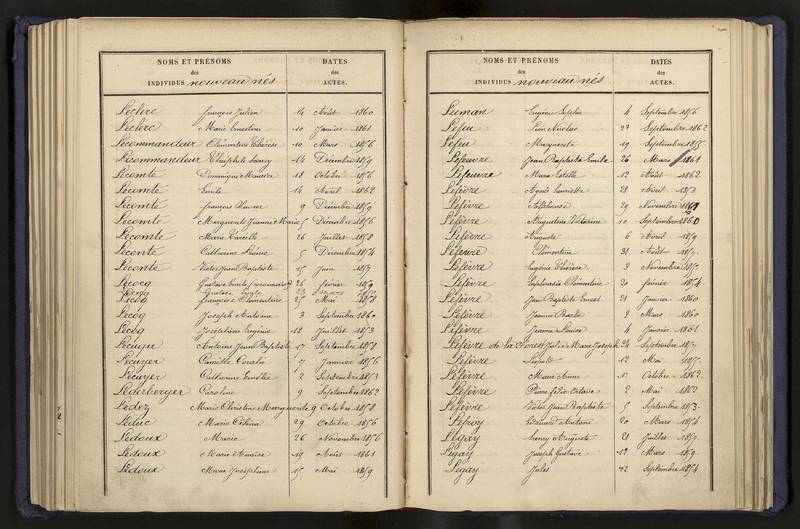 NOMS ET PRÉNOMS
des
INDIVIDUS nouveau nés
DATES
des
ACTES.
Leclerc François Julien 14 Août 1860
Leclerc Marie Ernestine 10 Janvier 1861
Lecommandeur Clémentine Thérèse 10 Mars 1856
Lecommandeur Théophile 14 Décembre 1859
Lecomte Dominique 18 Octobre 1856
Lecomte Emile 14 Août 1862
Lecomte François 9 Décembre 1859
Lecomte Marguerite Jeanne Marie 5 Décembre 1856
Lecomte Marie 26 Juillet 1858
Leconte Catherine 5 Décembre 1854
Leconte Victor Jean Baptiste 15 Juin 1857
Lecocq Gustave Emile 26 Février 1859
Lecoq Françoise Clémentine 25 Mai 1858
Lecoq Joseph Antoine 3 Septembre 1860
Lecoq Joséphine Eugénie 18 Juillet 1853
Lecuyer Antoine Jean Baptiste 17 Septembre 1858
Lecuyer Camille 7 Janvier 1856
Lecuyer Catherine 2 Septembre 1853
Lederberger Caroline 9 Septembre 1862
Ledez Marie Christine Marguerite 9 Octobre 1858
Leduc Marie 29 Octobre 1856
Ledoux Marie 26 Novembre 1856
Ledoux Marie 19 Août 1861
Ledoux Marie Joséphine 15 Mai 1859
NOMS ET PRÉNOMS
des
INDIVIDUS nouveau nés
DATES
des
ACTES.
Leeman Eugène 4 Septembre 1856
Lefeu Léon Nicolas 27 Septembre 1862
Lefeu Marguerite 19 Septembre 1855
Lefeuvre Jean Baptiste Emile 26 Mars 1861
Lefeuvre Marie 12 Août 1862
Lefèvre Agnès 28 Août 1853
Lefèvre Alphonse 29 Novembre
Lefèvre Augustine 10 Septembre 1860
Lefèvre Auguste 6 Août 1859
Lefeuvre Clémentine 31 Août 1857
Lefèvre Eugénie Thérèse 3 Novembre
Lefèvre Clémentine 20 Février 1854
Lefèvre Jean Baptiste Ernest 21 Janvier 1860
Lefèvre Jeanne 8 Mars 1860
Lefèvre Jeanne Louise 4 Janvier 1861
Lefèvre de la Marie Joseph 24 Septembre 1857
Lefèvre 12 Mai
Lefèvre Marie Anne Octobre 1862
Lefèvre Pierre Félix 2 Mai 1863
Lefèvre Victor Jean Baptiste 5 Septembre 1853
Lefroy Edouard 20 Mars 1854
Legay Henry Auguste 21 Juillet 1857
Legay Joseph Gustave 12 Mars 1859
Legay Jules 12 Septembre 1854